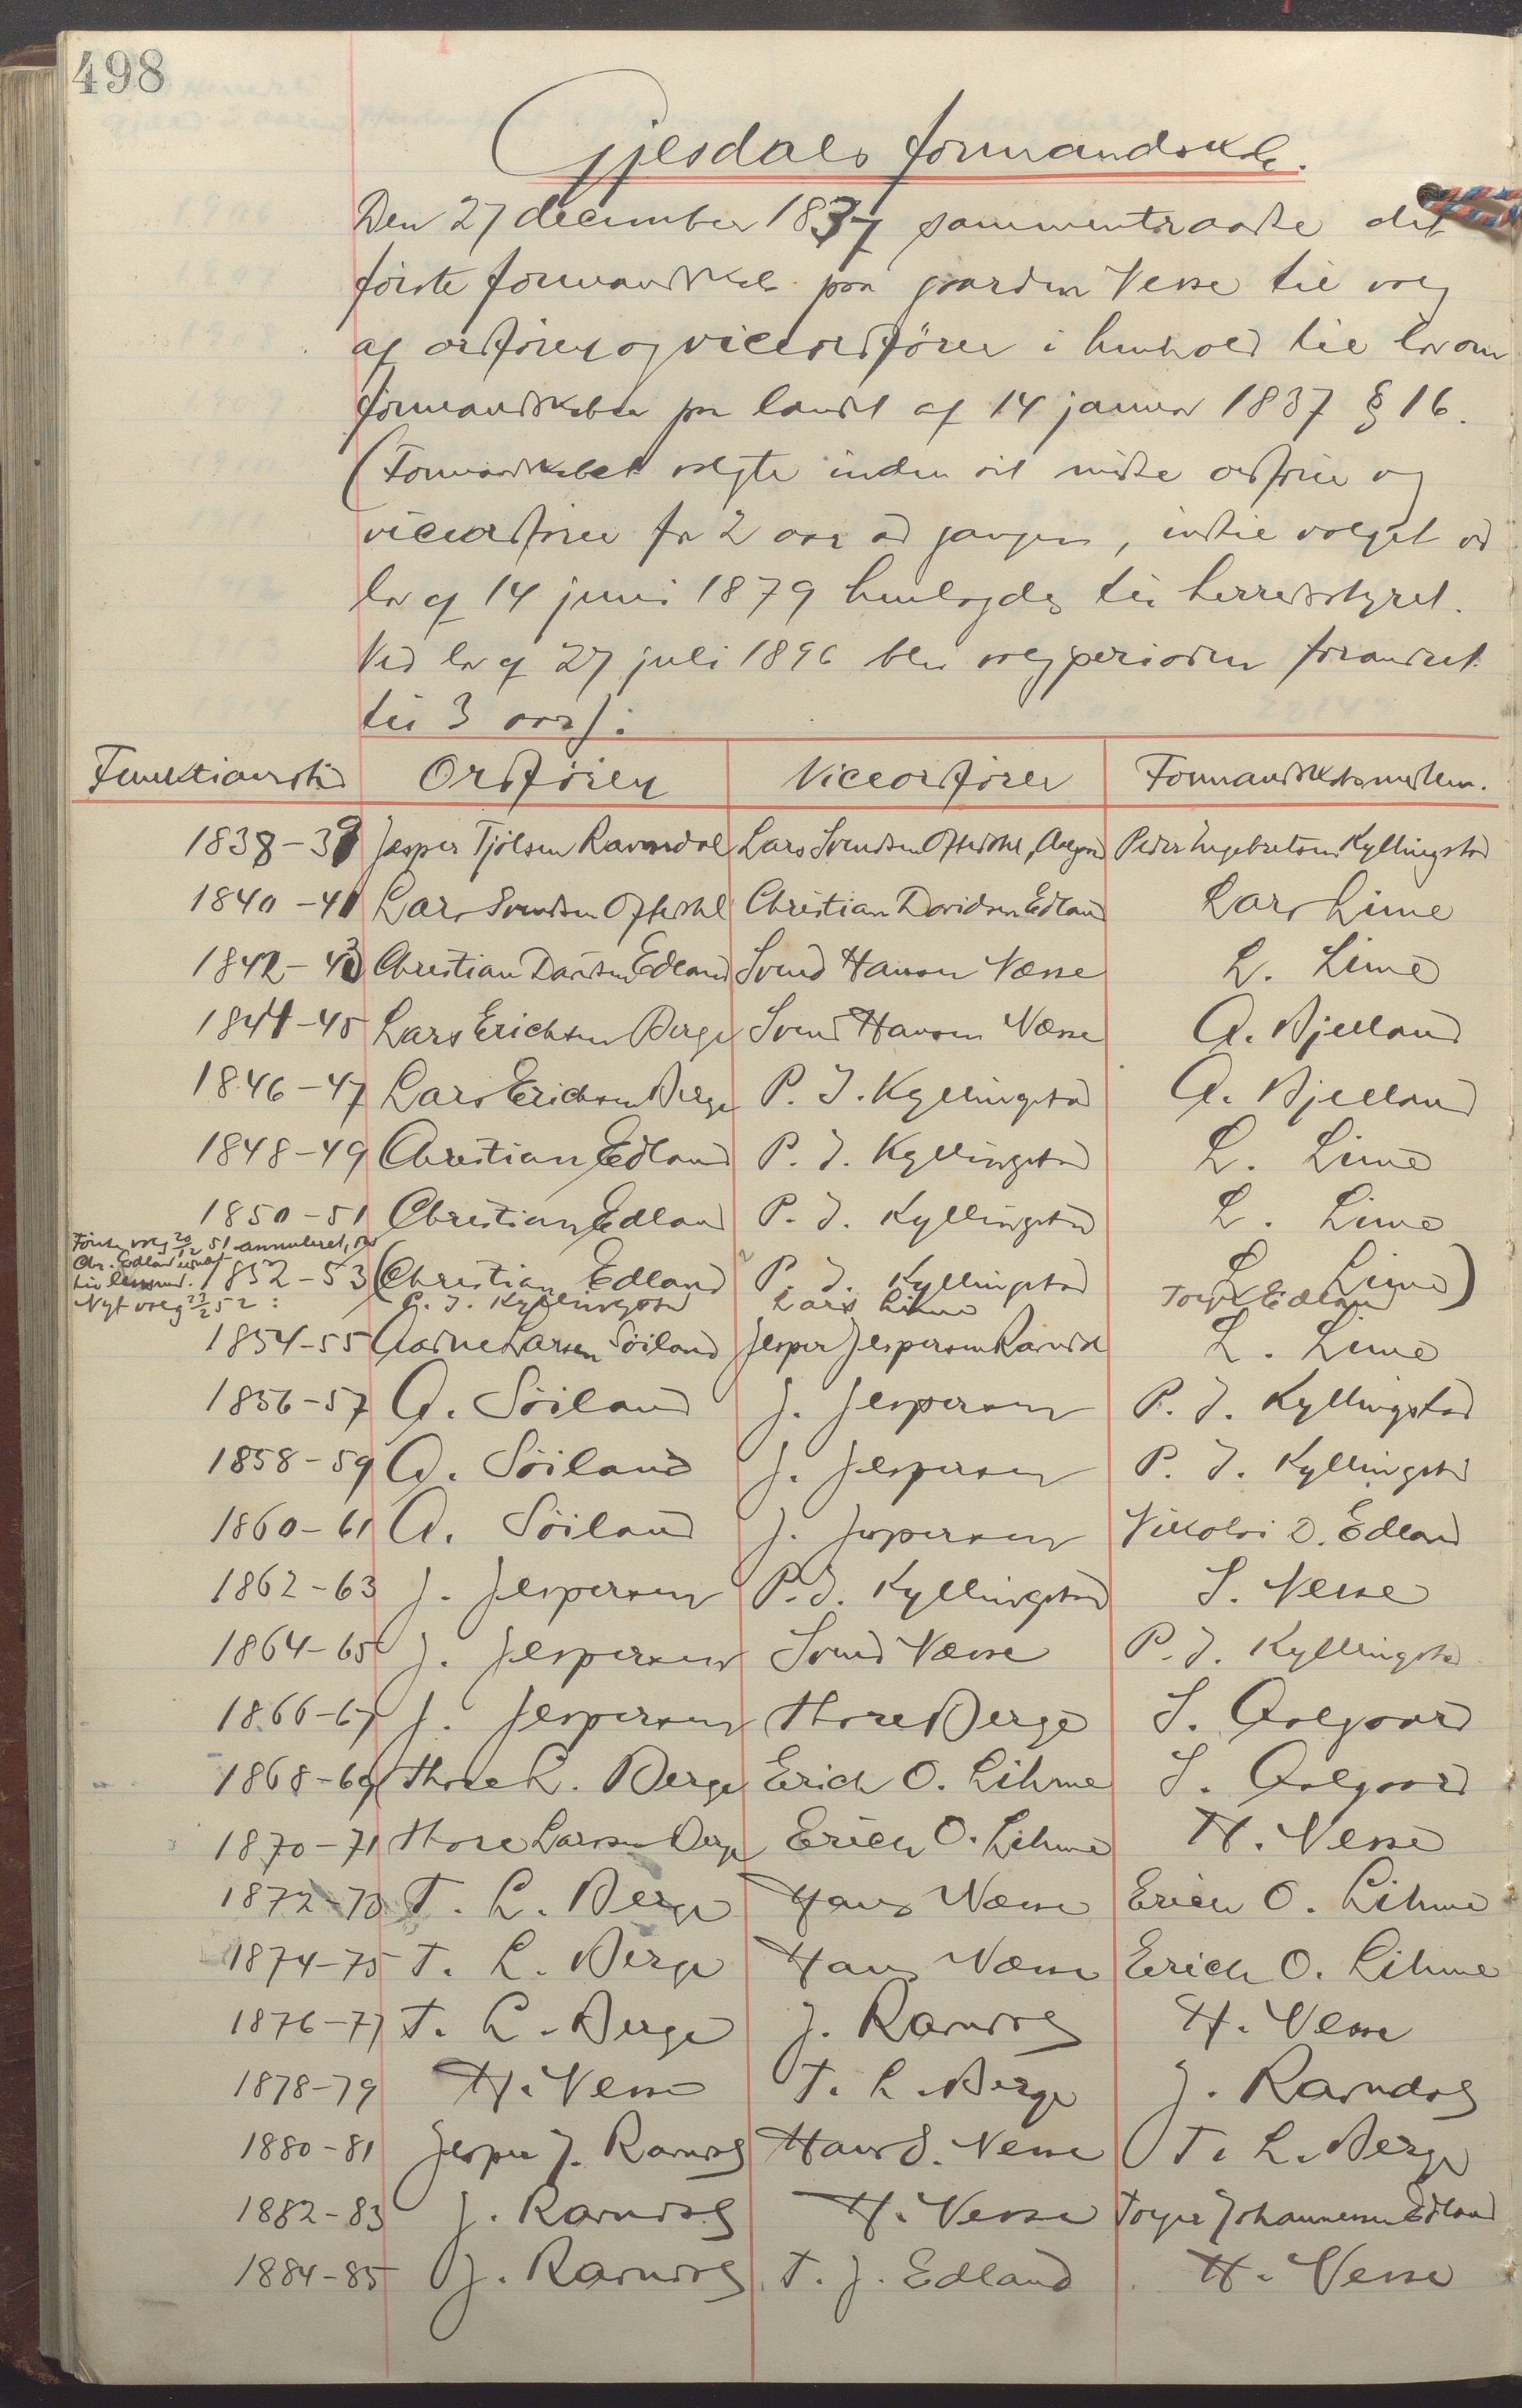 498
Gjesdals formandskab.
Den 27 december 1837 sammentraadte det
förste formandskab paa gaarden Nesse til valg
af ordförer og viceordförer i henhold til lov om
formandskaber paa landet af 14 januar 1837 § 16.
(Formandskabet valgte inden sit midte ordförer og
viceordförer for 2 aar ad gangen, indtil valget ved
lov af 14 juni 1879 henlagdes til herredsstyret.
Ved lov af 27 juli 1896 blev valgperioden forandret
til 3 aar):
Funktionstid Ordförer Viceordförer Formandskabsmedlem.
1838-39 Jesper Tjölsen Ravndal Lars Svendsen Oftedal, Aalgaard Peder Ingebretsen Kyllingstad
1840-41 Lars Svendsen Oftedal Christian Davidsen Edland Lars Lime
1842-43 Christian Davidsen Edland Svend Hanson Næsse L. Lime
1844-45 Lars Erichsen Berge Svend Hanson Næsse A. Bjelland
1846-47 Lars Erichsen Berge P. I. Kyllingstad A. Bjelland
1848-49 Christian Edland P. I. Kyllingstad L. Lime
1850-51 Christian Edland P. I. Kyllingstad L. Lime
Förste valg 20/12 51 annuleret, da
Chr. Edland
til lensmand. 1852-53 (Christian Edland P. I. Kyllingstad L. Lime)
Nyt valg 23/2 52: P. I. Kyllingstad Lars Lime Torger Edland
1854-55 Aadne Larsen Söiland Jesper Jespersen Ravndal L. Lime
1856-57 A. Söiland J. Jespersen P. I. Kyllingstad
1858-59 A. Söiland J. Jespersen P. I. Kyllingstad
1860-61 A. Söiland J. Jespersen Nikolai D. Edland
1862-63 J. Jespersen P. I. Kyllingstad S. Nesse
1864-65 J. Jespersen Svend Næsse P. I. Kyllingstad
1866-67 J. Jespersen Thore Berge S. Aalgaard
1868-69 Thore L. Berge Erich O. Lihme S. Aalgaard
1870-71 Thore Larsen Berge Erich O. Lihme H. Nesse
1872-73 T. L. Berge Hans Næsse Erich O. Lihme
1874-75 T. L. Berge Hans Næsse Erich O. Lihme
1876-77 T. L. Berge J. Ravndal H. Nesse
1878-79 H. Nesse T. L. Berge J. Ravndal
1880-81 Jesper J. Ravndal Hans S. Nesse T. L. Berge
1882-83 J. Ravndal H. Nesse Torger Johannesen Edland
1884-85 J. Ravndal T. J. Edland H. Nesse